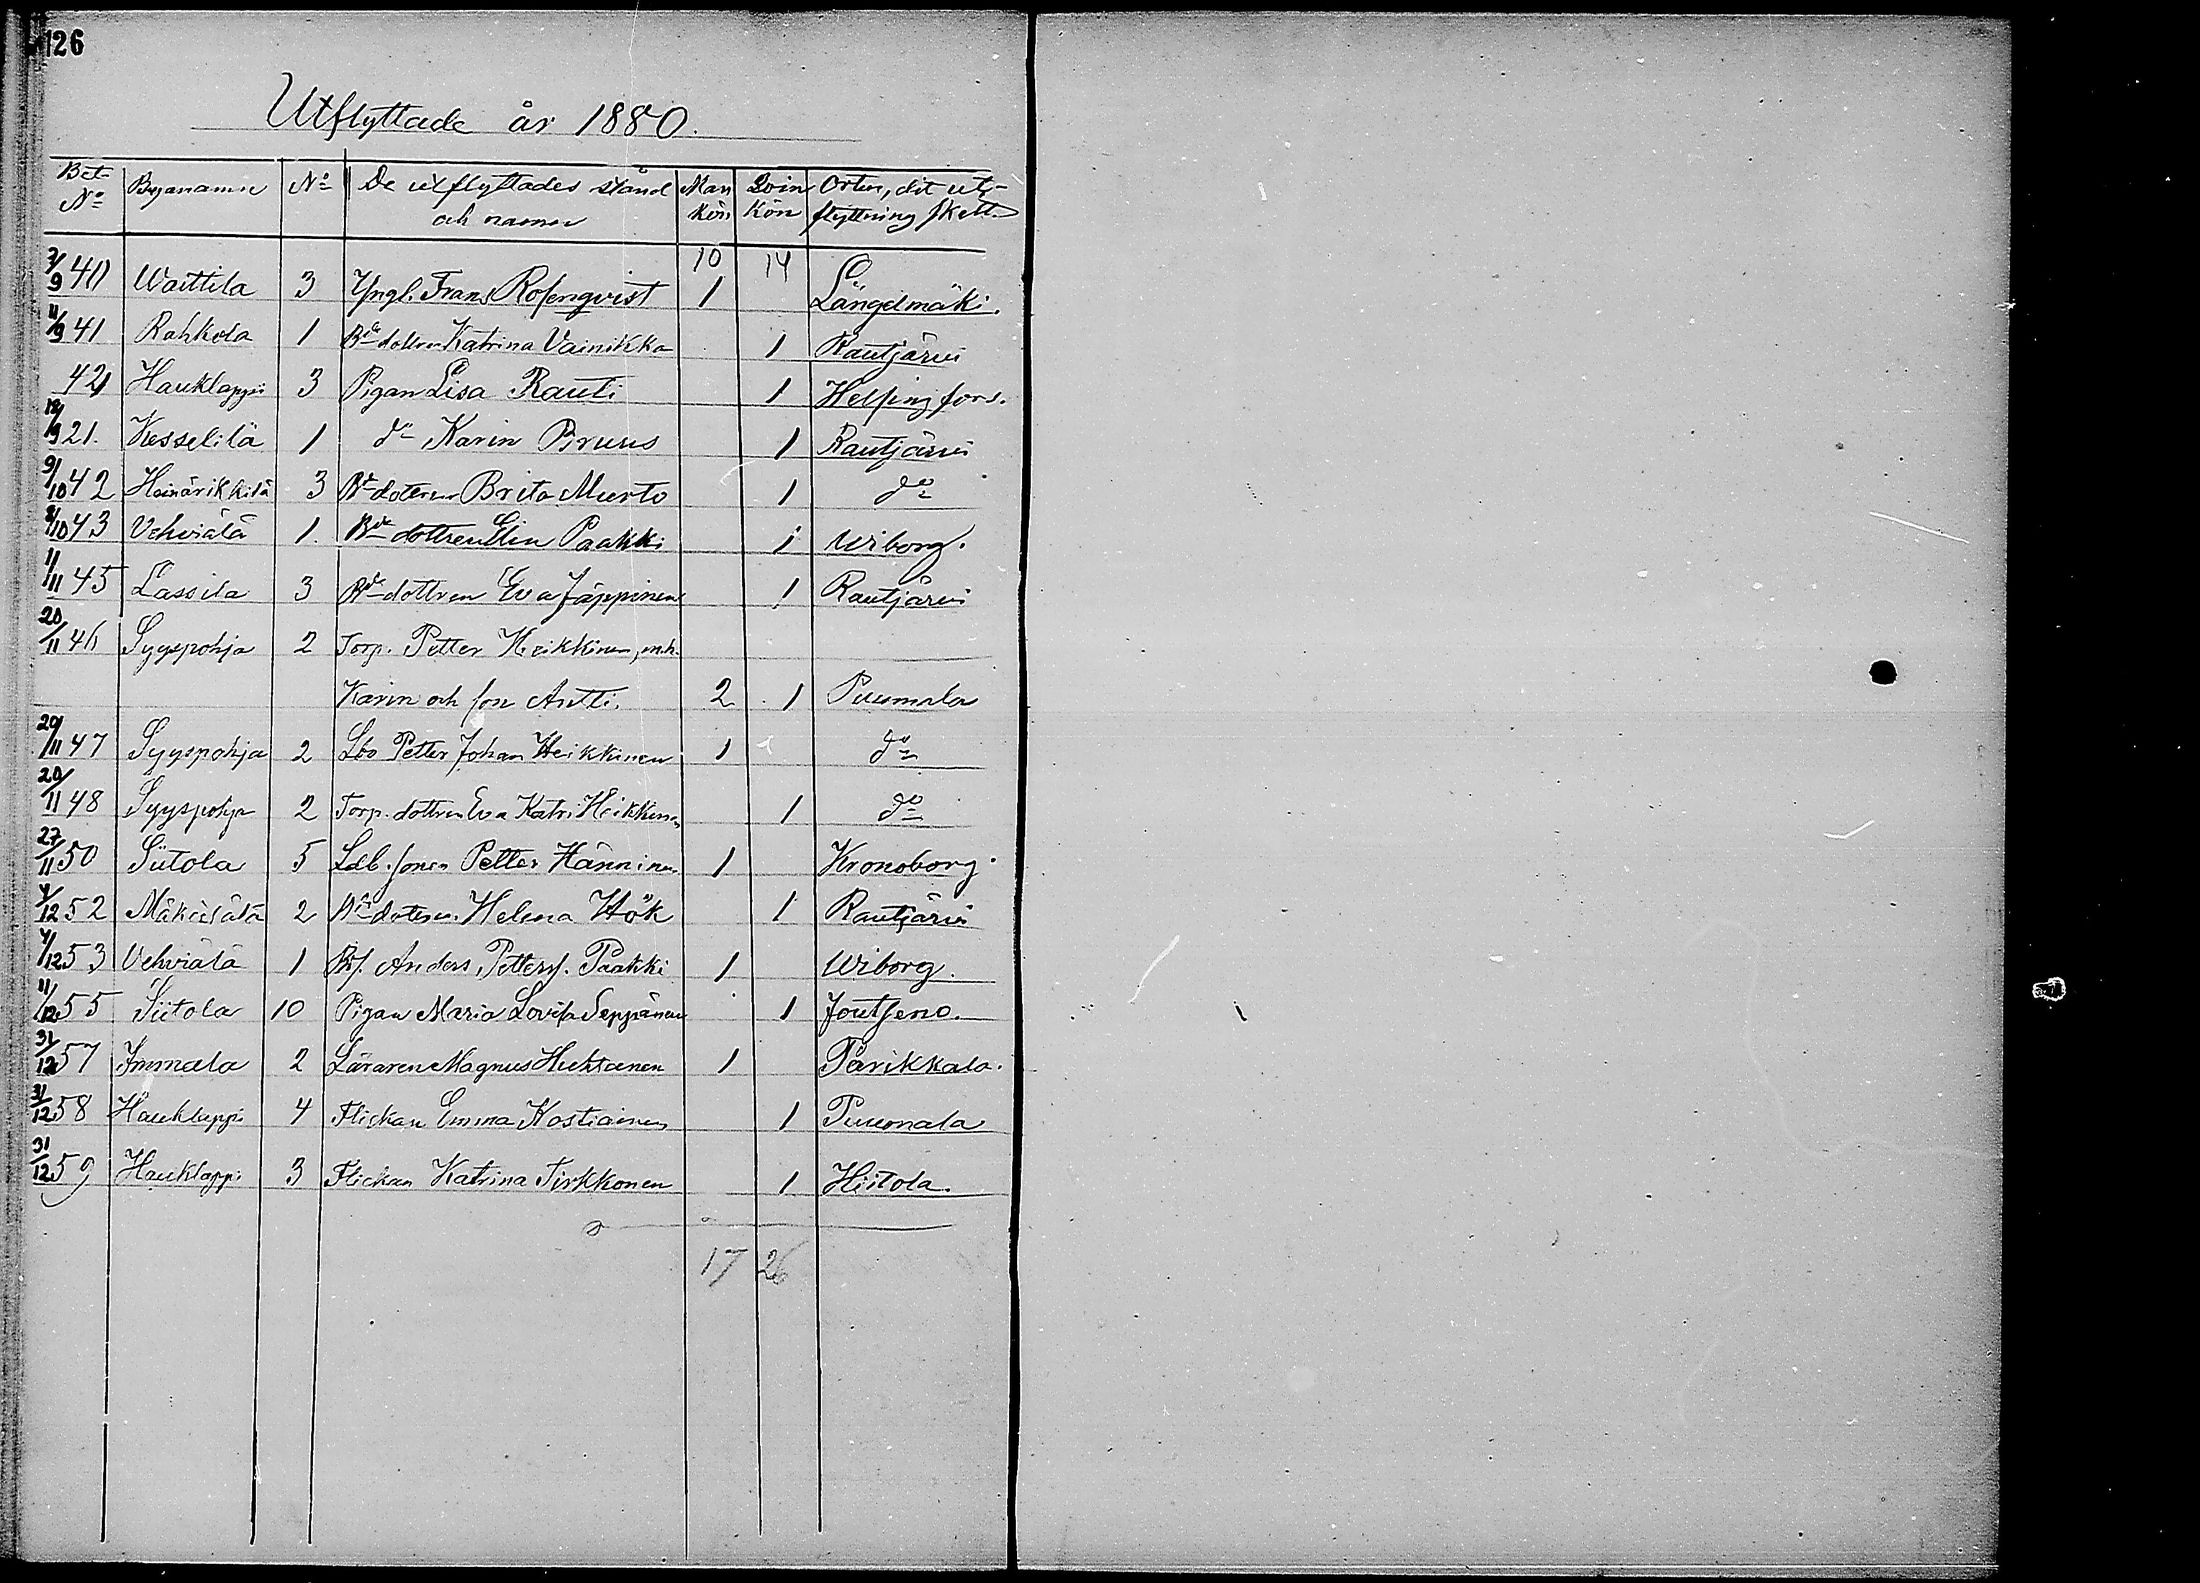 126
Utflyttade år 1880.
Bet. No Byanamn No De utflyttades stånd och namn Man kön Qvin kön Orten, dit utflyttning skett
10 14
7/9 40 Waittila 3 Yngl. Frans Rosenqvist 1 Längelmäki.
11/9 41 Rahkola 1 Bde dottren Katrina Vainikka 1 Rautjärvi
42 Hauklappi 3 Pigan Lisa Rauti 1 Helsingfors.
18/9 21. Kesselilä 1 do Karin Bruus 1 Rautjärvi
9/10 42 Heinärikkilä 3 Bde doteren Brita Murto 1 do
8/10 43 Vehviälä 1. Bde dottren Elin Paakki 1 Wiborg.
1/11 45 Lassila 3 Bde dottren Eva Jäppinen 1 Rautjärvi
20/11 46 Syyspohja 2 Torp. Petter Heikkinen, m.h.
Karin och son Antti. 2 1 Puumala
20/11 47 Syyspohja 2 Lbo Petter Johan Heikkinen 1 do
20/11 48 Syyspohja 2 Torp. dottren Eva Katri Heikkinen 1 do
27/11 50 Siitola 5 Ldb. sonen Petter Hänninen 1 Kronoborg.
4/12 52 Mäkisälä 2 Bde doteren Helena Hök 1 Rautjärvi
4/12 53 Vehviälä 1 Bds. Anders Petterss. Paakki 1 Wiborg.
11/12 55 Siitola 10 Pigan Maria Lovisa Seppänen 1 Joutseno.
31/12 57 Immala 2 Läraren Magnus Huhtanen 1 Parikkala.
31/12 58 Hauklappi 4 Flickan Emma Kostiainen 1 Puumala
31/12 59 Hauklappi 3 Flickan Katrina Tirkkonen 1 Hiitola.
17 26